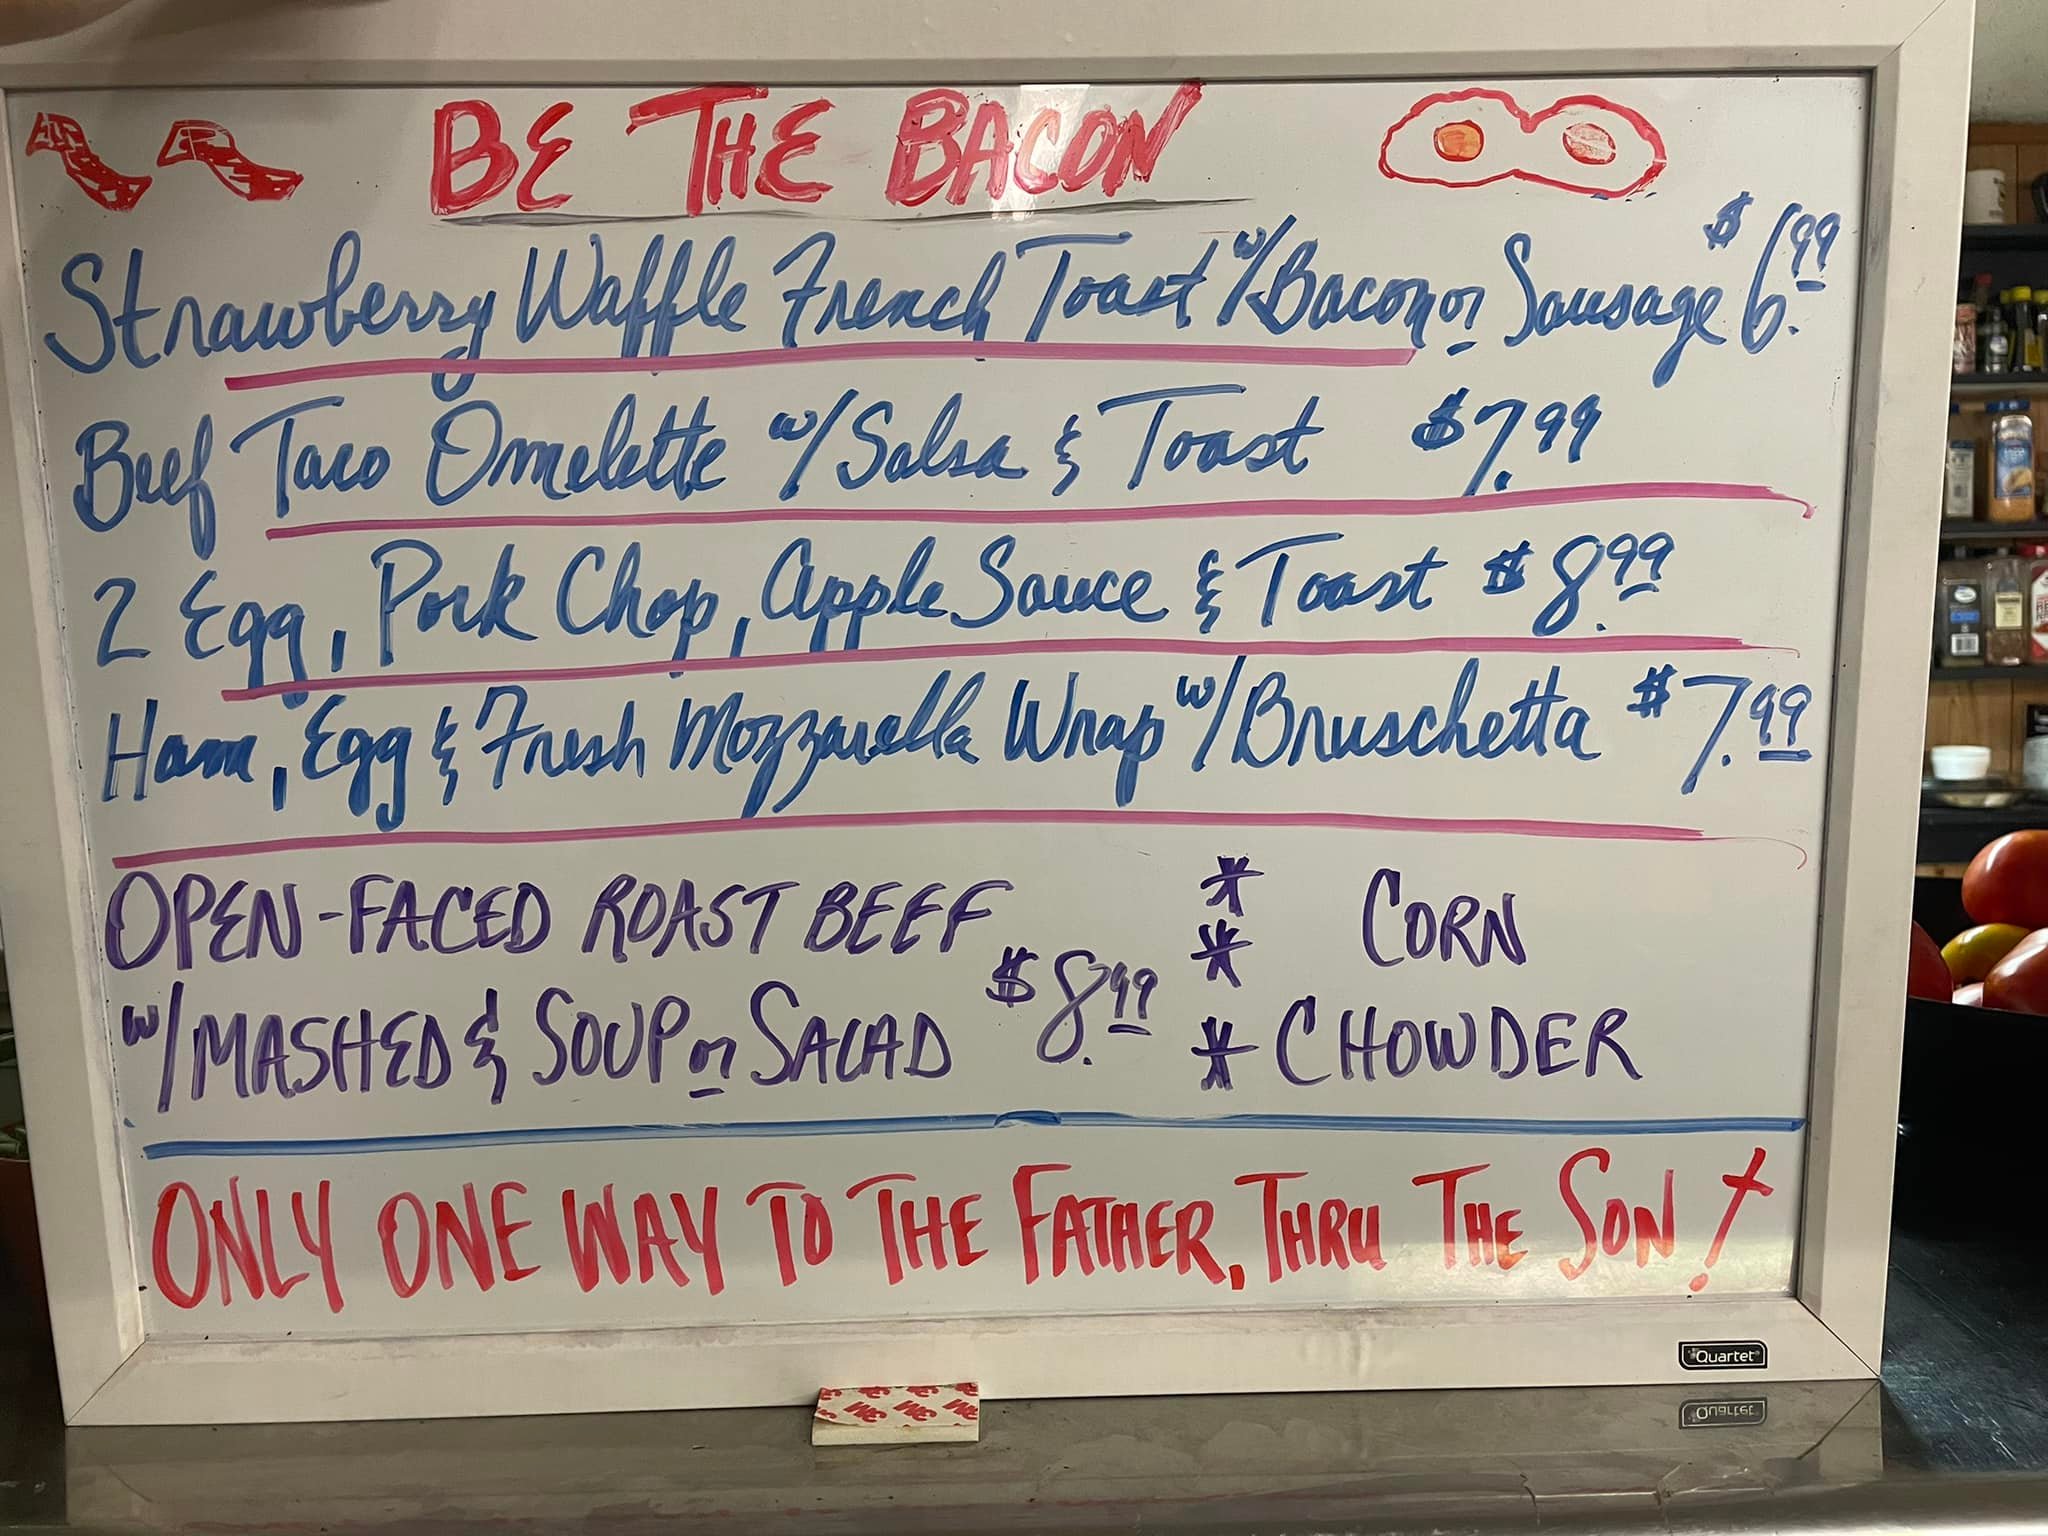 BE THE BACON
Strawberry Waffle French Toast w/Bacon or Sausage $6.99
Beef Taco Omelette w/Salsa & Toast $7.99
2 Egg, Pork Chop, Apple Sauce & Toast $8.99
Ham, Egg & Fresh Mozzarella Wrap w/Bruschetta $7.99
OPEN-FACED ROAST BEEF
w/MASHED & SOUP or SALAD $8.99
* CORN
*
* CHOWDER
ONLY ONE WAY TO THE FATHER, THRU THE SON!
Quartet
3M 3M 3M